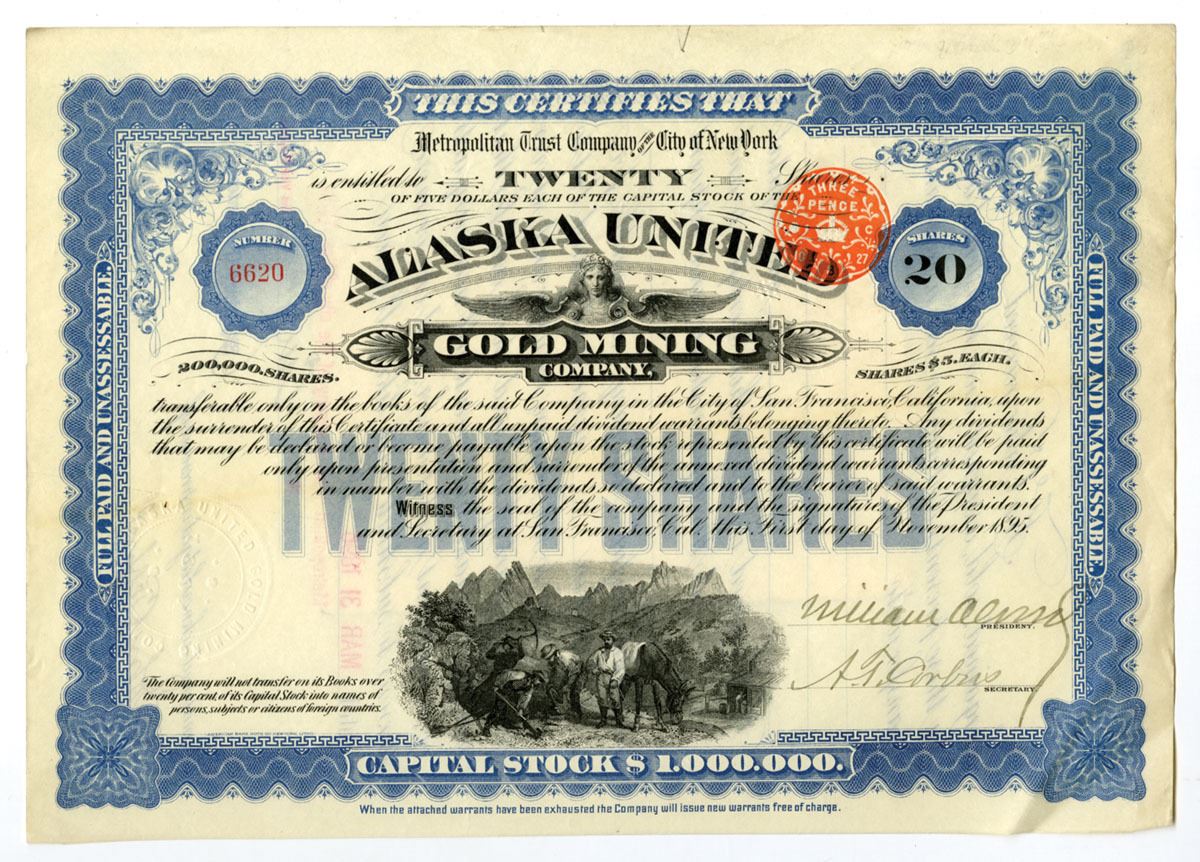 THIS CERTIFIES THAT
Metropolitan Trust Company OF THE City of New York
is entitled to TWENTY Shares
OF FIVE DOLLARS EACH OF THE CAPITAL STOCK OF THE
THREE
PENCE
27
ALASKA UNITED
NUMBER
6620
SHARES
20
GOLD MINING
COMPANY.
200,000. SHARES.
SHARES $5. EACH.
FULL PAID AND UNASSESSABLE.
FULL PAID AND UNASSESSABLE.
transferable only on the books of the said Company in the City of San Francisco, California, upon
the surrender of this Certificate and all unpaid dividend warrants belonging thereto. Any dividends
that may be declared or become payable upon the stock represented by this certificate will be paid
only upon presentation and surrender of the annexed dividend warrants corresponding
in number with the dividends so declared and to the bearer of said warrants.
Witness the seal of the company and the signatures of the President
and Secretary at San Francisco, Cal. this First day of November 1895.
TWENTY SHARES
ALASKA UNITED GOLD MINING CO.
MAR 31
William
PRESIDENT.
A. F.
SECRETARY.
The Company will not transfer on its Books over
twenty per cent. of its Capital Stock into names of
persons, subjects or citizens of foreign countries.
CAPITAL STOCK $ 1.000.000.
When the attached warrants have been exhausted the Company will issue new warrants free of charge.